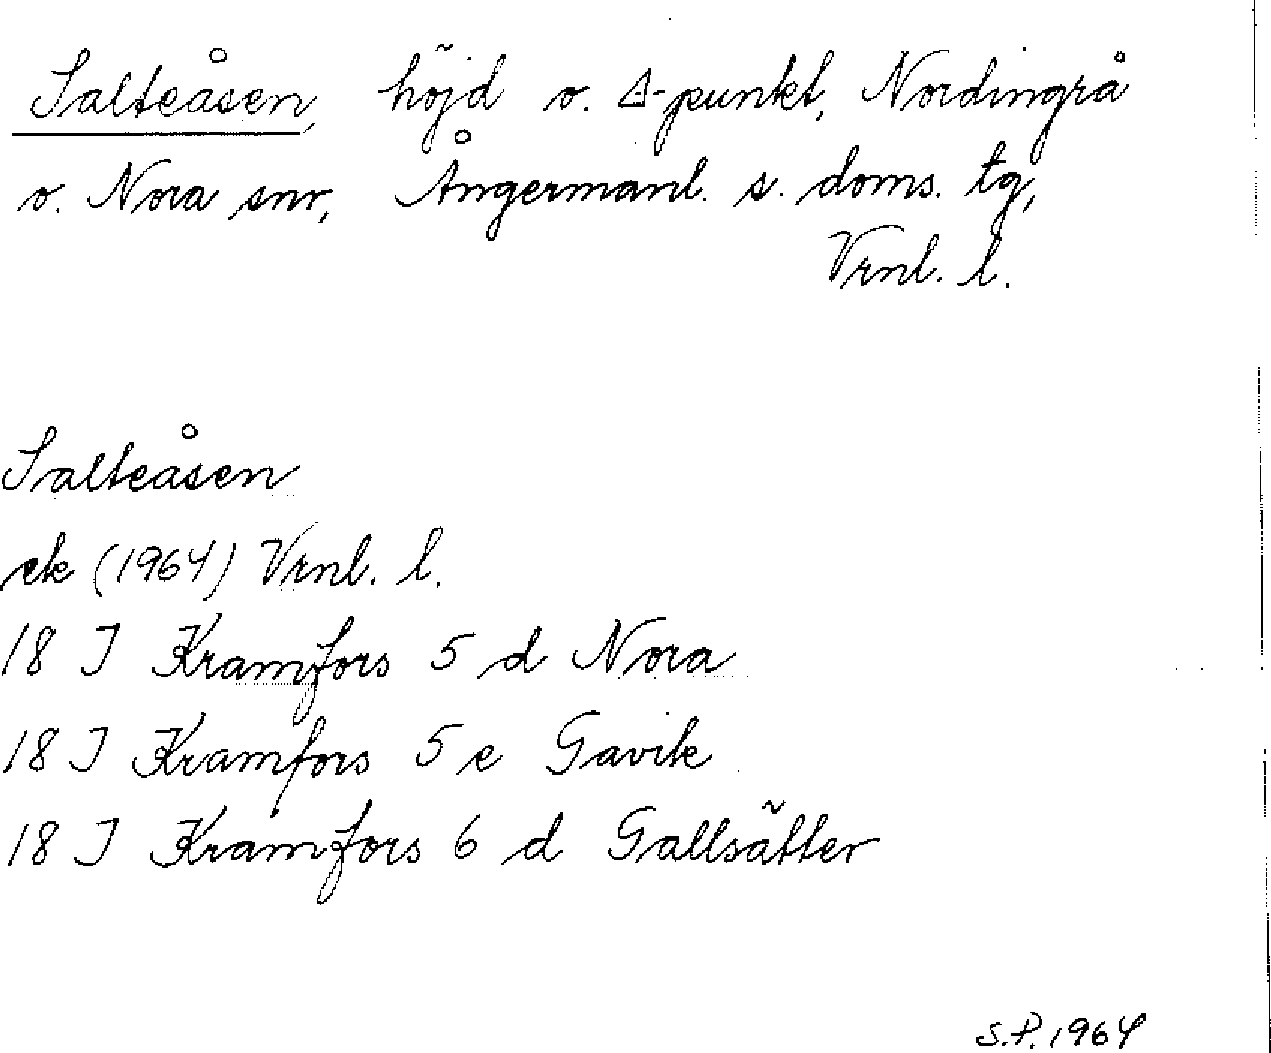 Salteåsen, höjd o. Δ-punkt, Nordingrå
o. Nora snr, Ångermanl. s. doms. tg,
Vrnl. l.
Salteåsen
ek (1964) Vrnl. l.
18 I Kramfors 5 d Nora
18 I Kramfors 5 e Gavik
18 I Kramfors 6 d Gallsätter
S.P. 1964